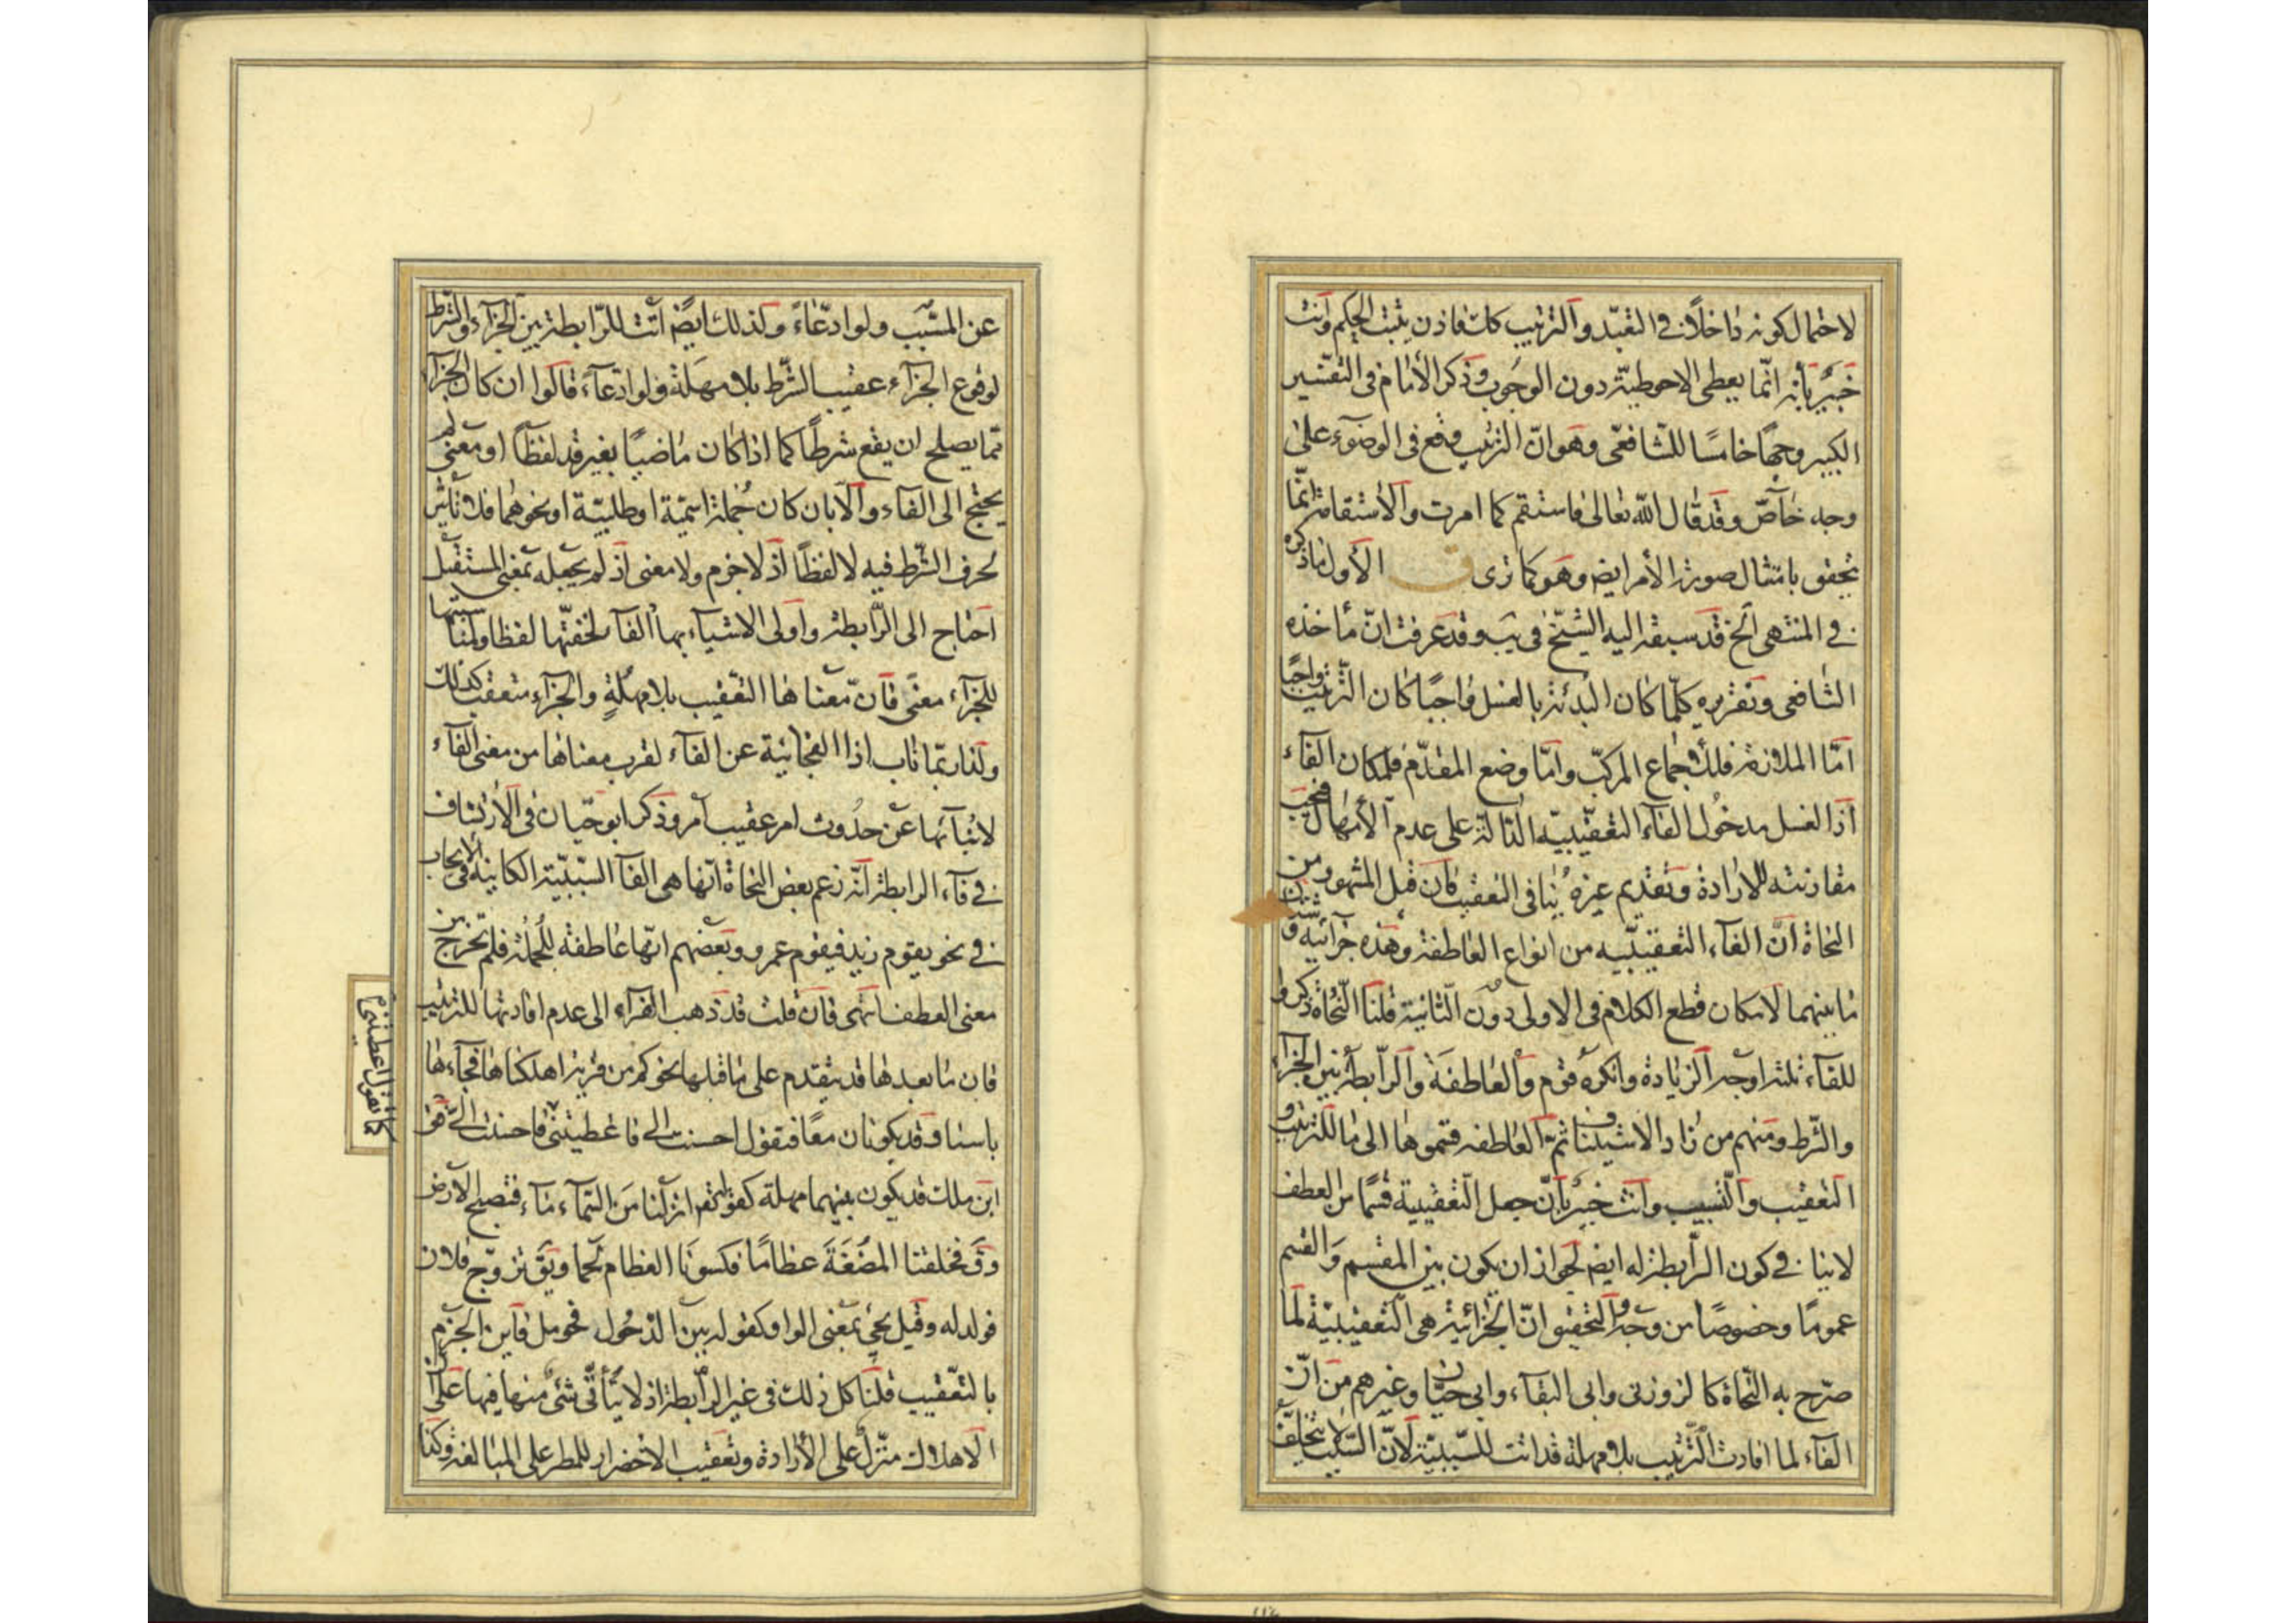 لاحتمال كونه داخلا في التعبد والترتيب كان فاذن يثبت الحكم وانت
خبير بأنه انّما يعطي الاحوطية دون الوجوب وذكر الأمام في التفسير
الكبير وجهًا خامسًا للشافعي وهو انّ الترتيب وقع في الوضوء على
وجه خاصّ وقد قال الله تعالى فاستقم كما امرت والاستقامة انّما
تحقق بامتثال صورة الأمر ايضا وهو كما ترى ق الأول ماذكره
في المنتهى الخ قد سبقه اليه الشيخ في يب وقد عرفت انّ مأخذه
الشافعي وتقريره كلّما كان البدئة بالغسل واجبًا كان الترتيب واجبًا
امّا الملازمة فللأجماع المركّب وامّا وضع المقدّم فلمكان الفاء
اذ الغسل مدخول الفاء التعقيبيه الدّالة على عدم الأمهال فيجب
مقارنته للارادة وتقديم غيره ينافي التعقيب فان قيل المشهور من
النحاة انّ الفاء التعقيبيه من انواع العاطفة وهذه جزائيه وشتّان
ما بينهما لامكان قطع الكلام في الاولى دون الثانية قلنا النّحاة ذكروا
للفاء ثلثه اوجه الزيادة وانكره قوم والعاطفة والرّابطة بين الجزاء
والشّرط ومنهم من زاد الاستيناف ثمّ العاطفه قسموها الى ما للترتيب و
التعقيب والتسبيب وانت خبير بانّ جعل التّعقيبية قسمًا من العطف
لاينافي كون الرّابطة له ايضا لجواز ان يكون بين المقسم والقسم
عمومًا وخصوصًا من وجه والتحقيق انّ الجزائية هي التعقيبيّة لما
صرّح به النّحاة كالزوزني وابي البقاء وابي حيّان وغيرهم من انّ
الفاء لما افادت الترتيب بلا مهلة قد اتت للسّببيّة لانّ السّبب لا يتخلّف
عن المسبّب ولو ادّعاءً وكذلك ايضا اتت للرّابطة بين الجزاء والشّرط
لوقوع الجزاء عقيب الشّرط بلا مهلة ولو ادّعاء قالوا ان كان الجزاء
ممّا يصلح ان يقع شرطًا كما اذا كان ماضيًا بغير قد لفظًا او معنى لم
يحتج الى الفاء والّا بان كان جملة اسميّة او طلبيّة او نحوهما فلا تأثير
لحرف الشّرط فيه لا لفظًا اذ لا جزم ولا معنى اذ لم يجعله بمعنى المستقبل
احتاج الى الرّابطة واولى الاشياء بها الفاء لخفّتها لفظا ولمناسبتها
للجزاء معنًى فانّ معناها التعّقيب بلا مهلةٍ والجزاء متعقب كذلك
ولذا ربّما ناب اذا الفجائية عن الفاء لقرب معناها من معنى الفاء
لانبائها عن حدوث امر عقيب امر وذكر ابو حيّان في الأرتشاف
في فاء الرابطة انّه زعم بعض النحاة انّها هي الفاء السّببيّة الكاينه في الايجاب
في نحو يقوم زيد فيقوم عمرو وبعضهم انّها عاطفة للجملة فلم تخرج من
معنى العطف انتهى فان قلت قد ذهب الفراء الى عدم افادتها للترتيب
فان ما بعدها قد يتقدم على ما قبلها نحو كم من قرية اهلكناها فجاءها
باسنا وقد يكونان معًا فتقول احسنت الي فاعطيتني فاحسنت الي وقال
ابن ملك قد يكون بينهما مهلة كقوله تعالى انزلنا من السّماء ماء فتصبح الارض
وقَ فخلقنا المضغةَ عظامًا فكسونا العظام لحما ويق تزوّج فلان
فولد له وقيل يجئ بمعنى الواو كقوله بين الدّخول فحومل فاين الجزم
بالتعّقيب قلنا كل ذلك في غير الرّابطة اذ لا يتأتّى شئ منها فيها على انّ
الاهلاك منزّل على الأرادة وتعقيب الاخضرار للمطر على المبالغة وكذا
كما تقول اعطيتني